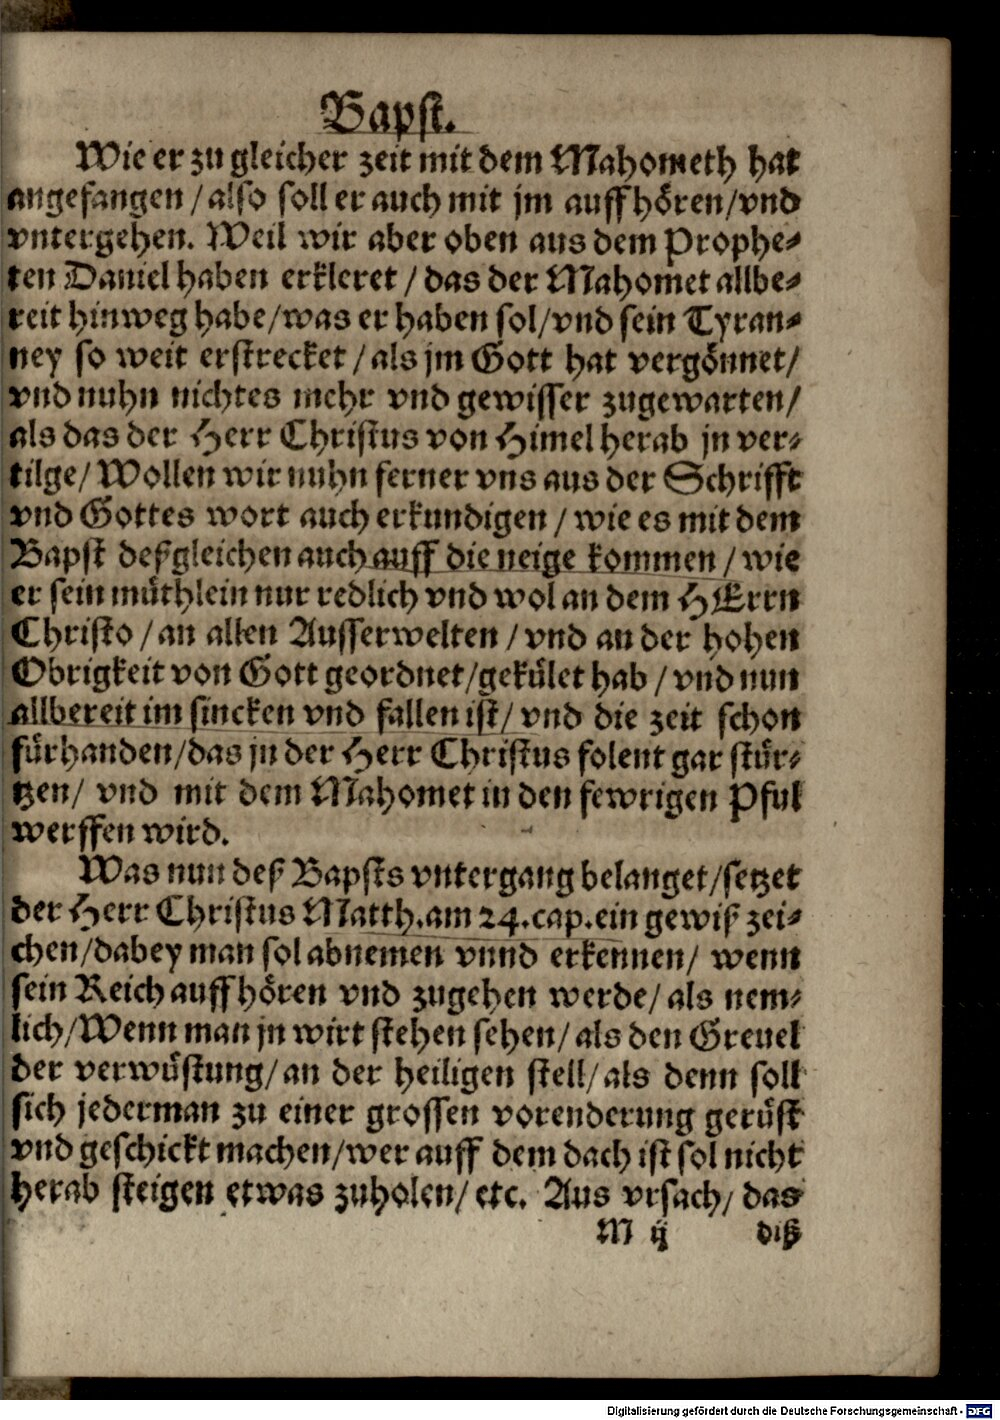 Bapst.
Wie er zu gleicher zeit mit dem Mahometh hat
angefangen / also soll er auch mit jm auffhören/vnd
vntergehen. Weil wir aber oben aus dem Prophe-
ten Daniel haben erkleret / das der Mahomet allbe-
reit hinweg habe/was er haben sol/vnd sein Tyran-
ney so weit erstrecket / als jm Gott hat vergönnet/
vnd nuhn nichtes mehr vnd gewisser zugewarten/
als das der Herr Christus von Himel herab jn ver-
tilge/ Wollen wir nuhn ferner vns aus der Schrifft
vnd Gottes wort auch erkundigen / wie es mit dem
Bapst deßgleichen auch auff die neige kommen / wie
er sein müthlein nur redlich vnd wol an dem HErrn
Christo / an allen Ausserwelten / vnd an der hohen
Obrigkeit von Gott geordnet/gekület hab / vnd nun
allbereit im sincken vnd fallen ist/ vnd die zeit schon
fürhanden/das jn der Herr Christus folent gar stür-
tzen/ vnd mit dem Mahomet in den fewrigen Pful
werffen wird.
Was nun deß Bapsts vntergang belanget/setzet
der Herr Christus Matth.am 24.cap.ein gewiß zei-
chen/dabey man sol abnemen vnnd erkennen/ wenn
sein Reich auffhören vnd zugehen werde/ als nem-
lich/Wenn man jn wirt stehen sehen/ als den Greuel
der verwüstung/an der heiligen stell/als denn soll
sich jederman zu einer grossen vorenderung gerüst
vnd geschickt machen/wer auff dem dach ist sol nicht
herab steigen etwas zuholen/ etc. Aus vrsach/ das
M ij diß
Digitalisierung gefördert durch die Deutsche Forschungsgemeinschaft - DFG